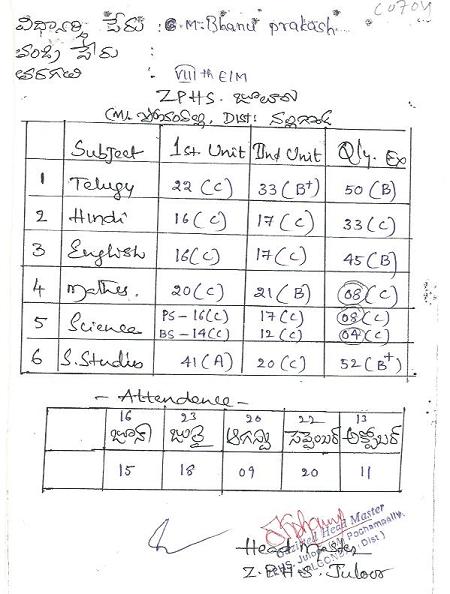 C0704
విద్యార్థి పేరు : G.M. Bhanu prakash
తండ్రి పేరు :
తరగతి : VIII th E/M
ZPHS. జూలూరు
Dist: నల్లగొండ
Subject 1st. Unit IInd Unit Qly. Ex
1 Telugu 22 (C) 33 (B+) 50 (B)
2 Hindi 16 (C) 17 (C) 33 (C)
3 English 16 (C) 17 (C) 45 (B)
4 Mathes. 20 (C) 21 (B) 08 (C)
5 Science PS - 16 (C) 17 (C) 08 (C)
BS - 14 (C) 12 (C) 04 (C)
6 S. Studies 41 (A) 20 (C) 52 (B+)
- Attendence -
16 23 20 22 13
జూన్ జులై ఆగస్టు సప్టెంబర్ అక్టోబర్
15 18 09 20 11
Gazetted Head Master
Head Master
Z.P.H.S. Juloor